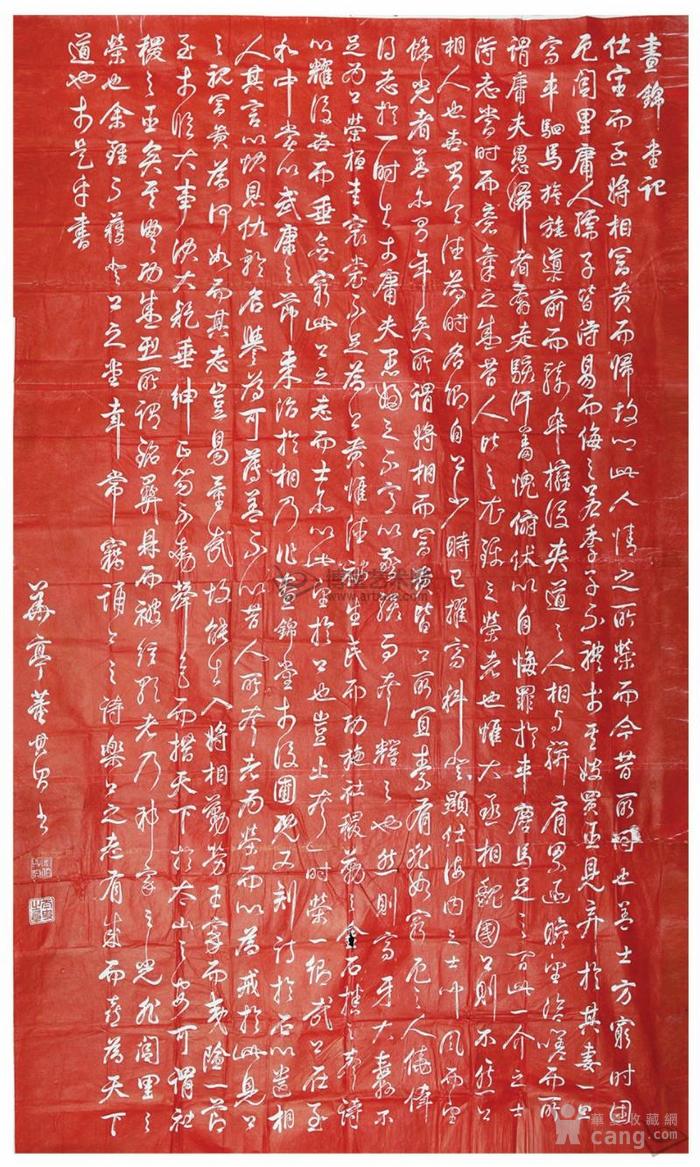 晝錦堂記
仕宦而至將相富貴而歸故鄉此人情之所榮而今昔所同也蓋士方窮時困
阨閭里庸人孺子皆得易而侮之若季子不禮於其嫂買臣見弃於其妻一旦
高車駟馬旗旄導前而騎卒擁後夾道之人相與駢肩累迹瞻望咨嗟而所
謂庸夫愚婦者奔走駭汗羞愧俯伏以自悔罪於車塵馬足之間此一介之士
得志當時而意氣之盛昔人比之衣錦之榮者也惟大丞相魏國公則不然公
相人也世有令德為時名卿自公少時已擢高科登顯仕海內之士聞風而望
餘光者蓋亦有年矣所謂將相而富貴皆公所宜素有非如窮阨之人僥倖
得志於一時出於庸夫愚婦之不意以驚駭而夸耀之也然則高牙大纛不
足為公榮桓圭袞裳不足為公貴惟德被生民而功施社稷勒之金石播之聲詩
以耀後世而垂無窮此公之志而士亦以此望於公也豈止夸一時榮一鄉哉公在至
和中嘗以武康之節來治於相乃作晝錦堂於後圃既又刻詩於石以遺相
人其言以快恩仇矜名譽為可薄蓋不以昔人所夸者為榮而以為戒於此見公
之視富貴為何如而其志豈易量哉故能出入將相勤勞王家而夷險一節
至於臨大事決大議垂紳正笏不動聲色而措天下於太山之安可謂社
稷之臣矣其豐功盛烈所謂銘彝鼎而被絃歌者乃邦家之光非閭里之
榮也余雖不獲登公之堂幸常竊誦公之詩樂公之志有成而喜為天下
道也於是乎書
華亭董其昌書
博宝艺术网
www.artxun.com
華夏收藏網
cang.com